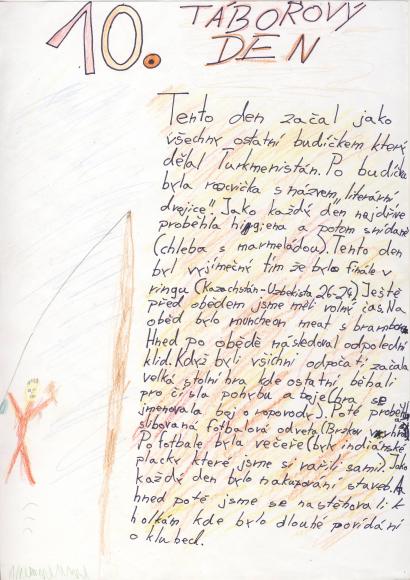 10. TÁBOROVÝ
DEN
Tento den začal jako
všechny ostatní budíčkem který
dělal Turkmenistán. Po budíčku
byla rozcvička s názvem „literární
dvojice". Jako každý den nejdříve
proběhla hygiena a potom snídaně
(chleba s marmeládou). Tento den
byl vyjímečný tím že bylo finále v
ringu (Kazachstán-Uzbekista 26-24) Ještě
před obědem jsme měli volný čas. Na
oběd bylo muncheon meat s brambora
Hned po obědě následoval odpolední
klid. Když byli všichni odpočatí, začala
velká stolní hra kde ostatní běhali
pro čísla pohybu a boje (hra se
jmenovala boj o ropovody). Poté proběhla
slibovaná fotbalová odveta (Brzkov
Po fotbale byla večeře (byly indiánské
placky které jsme si vařili sami). Jako
každý den bylo nakupování staveb. A
hned poté jsme se nastěhovali k
holkám kde bylo dlouhé povídání
o klubech.